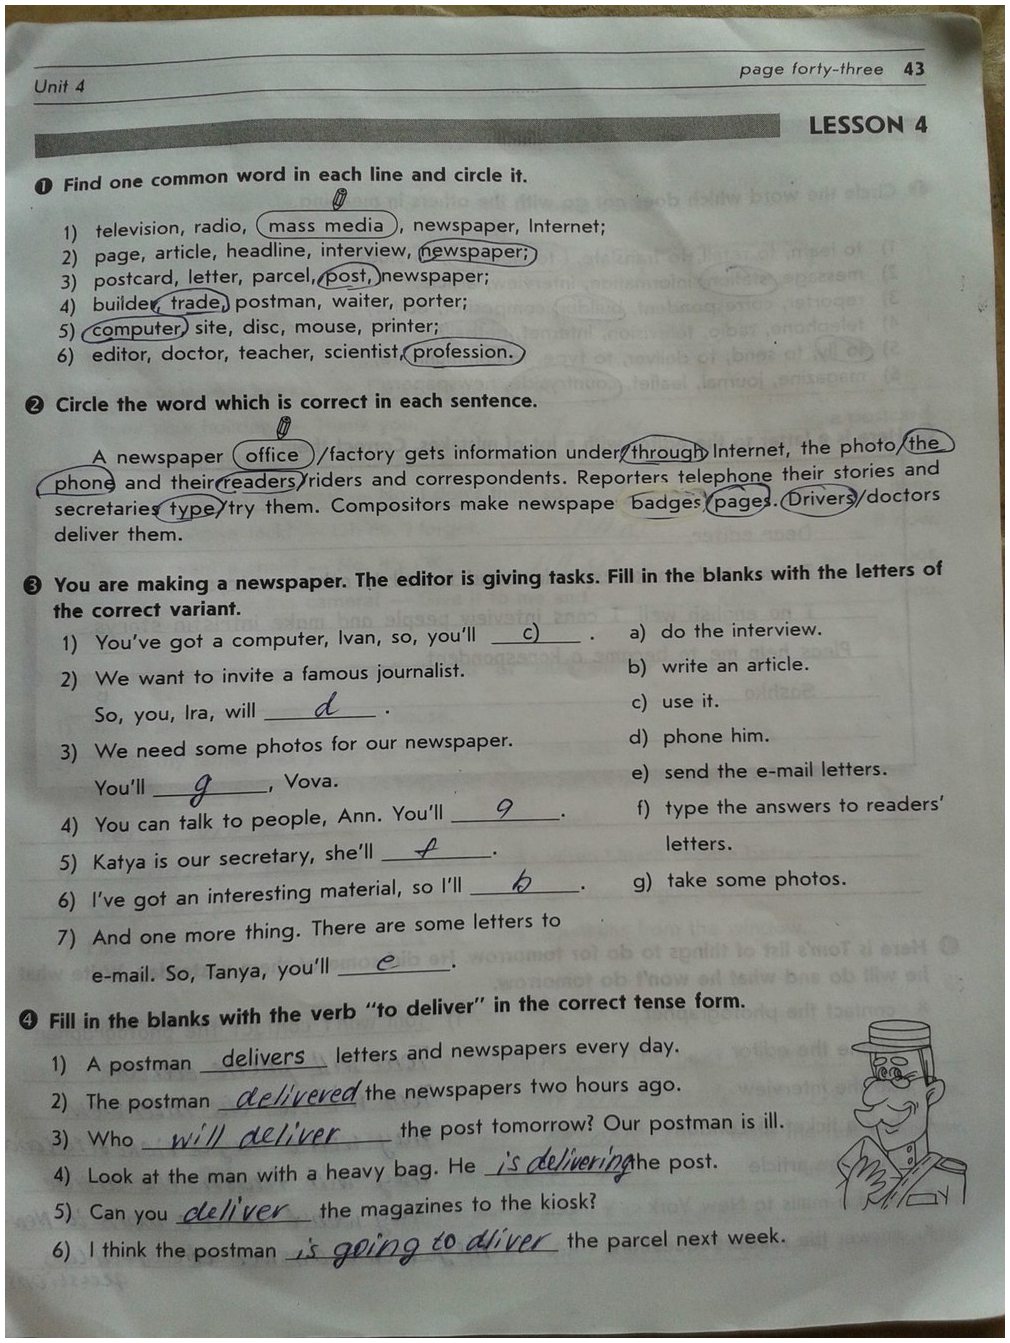 Unit 4
page forty-three 43
LESSON 4
1 Find one common word in each line and circle it.
1) television, radio, mass media, newspaper, Internet;
2) page, article, headline, interview, newspaper;
3) postcard, letter, parcel, post, newspaper;
4) builder, trade, postman, waiter, porter;
5) computer, site, disc, mouse, printer;
6) editor, doctor, teacher, scientist, profession.
2 Circle the word which is correct in each sentence.
A newspaper office/factory gets information under/through Internet, the photo/the
phone and their readers/riders and correspondents. Reporters telephone their stories and
secretaries type/try them. Compositors make newspape badges/pages. Drivers/doctors
deliver them.
3 You are making a newspaper. The editor is giving tasks. Fill in the blanks with the letters of
the correct variant.
1) You've got a computer, Ivan, so, you'll c) .
2) We want to invite a famous journalist.
So, you, Ira, will d .
3) We need some photos for our newspaper.
You'll g, Vova.
4) You can talk to people, Ann. You'll a.
5) Katya is our secretary, she'll f.
6) I've got an interesting material, so I'll b.
7) And one more thing. There are some letters to
e-mail. So, Tanya, you'll e.
a) do the interview.
b) write an article.
c) use it.
d) phone him.
e) send the e-mail letters.
f) type the answers to readers'
letters.
g) take some photos.
4 Fill in the blanks with the verb "to deliver" in the correct tense form.
1) A postman delivers letters and newspapers every day.
2) The postman delivered the newspapers two hours ago.
3) Who will deliver the post tomorrow? Our postman is ill.
4) Look at the man with a heavy bag. He is delivering the post.
5) Can you deliver the magazines to the kiosk?
6) I think the postman is going to dliver the parcel next week.